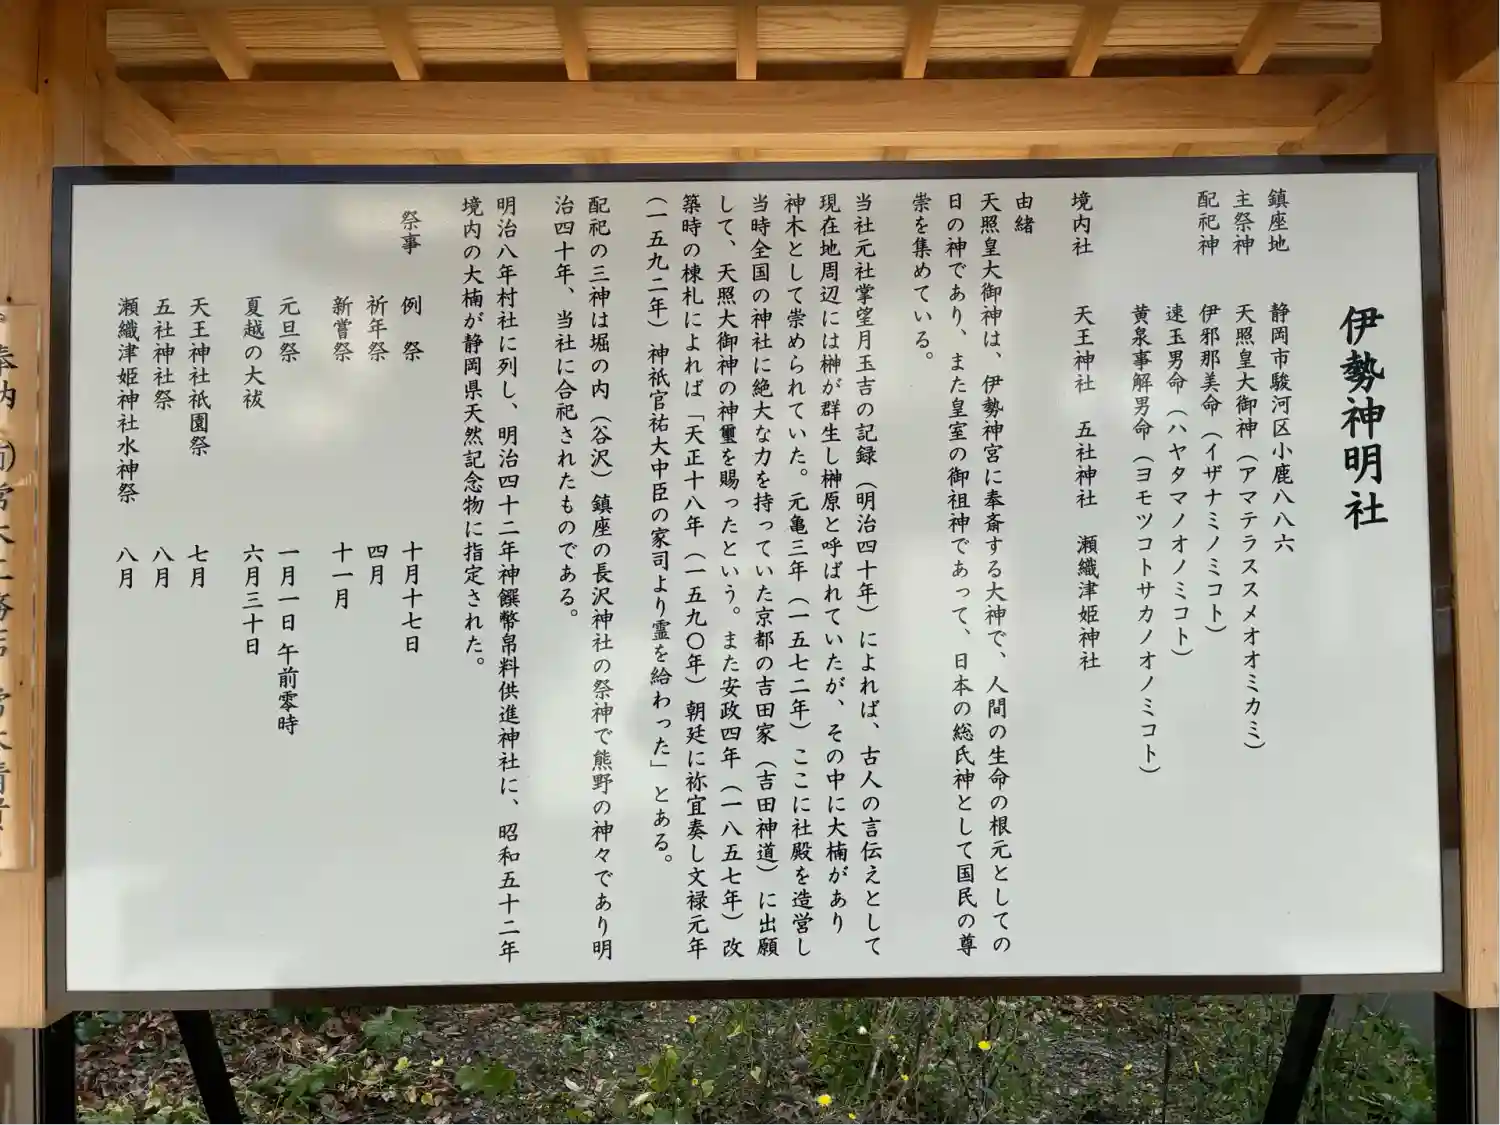 伊勢神明社
鎮座地 静岡市駿河区小鹿八八六
主祭神 天照皇大御神（アマテラススメオオミカミ）
配祀神 伊邪那美命（イザナミノミコト）
速玉男命（ハヤタマノオノミコト）
黄泉事解男命（ヨモツコトサカノオノミコト）
境内社 天王神社 五社神社 瀬織津姫神社
由緒
天照皇大御神は、伊勢神宮に奉斎する大神で、人間の生命の根元としての
日の神であり、また皇室の御祖神であって、日本の総氏神として国民の尊
崇を集めている。
当社元社掌望月玉吉の記録（明治四十年）によれば、古人の言伝えとして
現在地周辺には榊が群生し榊原と呼ばれていたが、その中に大楠があり
神木として崇められていた。元亀三年（一五七二年）ここに社殿を造営し
当時全国の神社に絶大な力を持っていた京都の吉田家（吉田神道）に出願
して、天照大御神の神璽を賜ったという。また安政四年（一八五七年）改
築時の棟札によれば「天正十八年（一五九〇年）朝廷に祢宜奏し文禄元年
（一五九二年）神祇官祐大中臣の家司より霊を給わった」とある。
配祀の三神は堀の内（谷沢）鎮座の長沢神社の祭神で熊野の神々であり明
治四十年、当社に合祀されたものである。
明治八年村社に列し、明治四十二年神饌幣帛料供進神社に、昭和五十二年
境内の大楠が静岡県天然記念物に指定された。
祭事 例祭 十月十七日
祈年祭 四月
新嘗祭 十一月
元旦祭 一月一日 午前零時
夏越の大祓 六月三十日
天王神社祇園祭 七月
五社神社祭 八月
瀬織津姫神社水神祭 八月
奉納